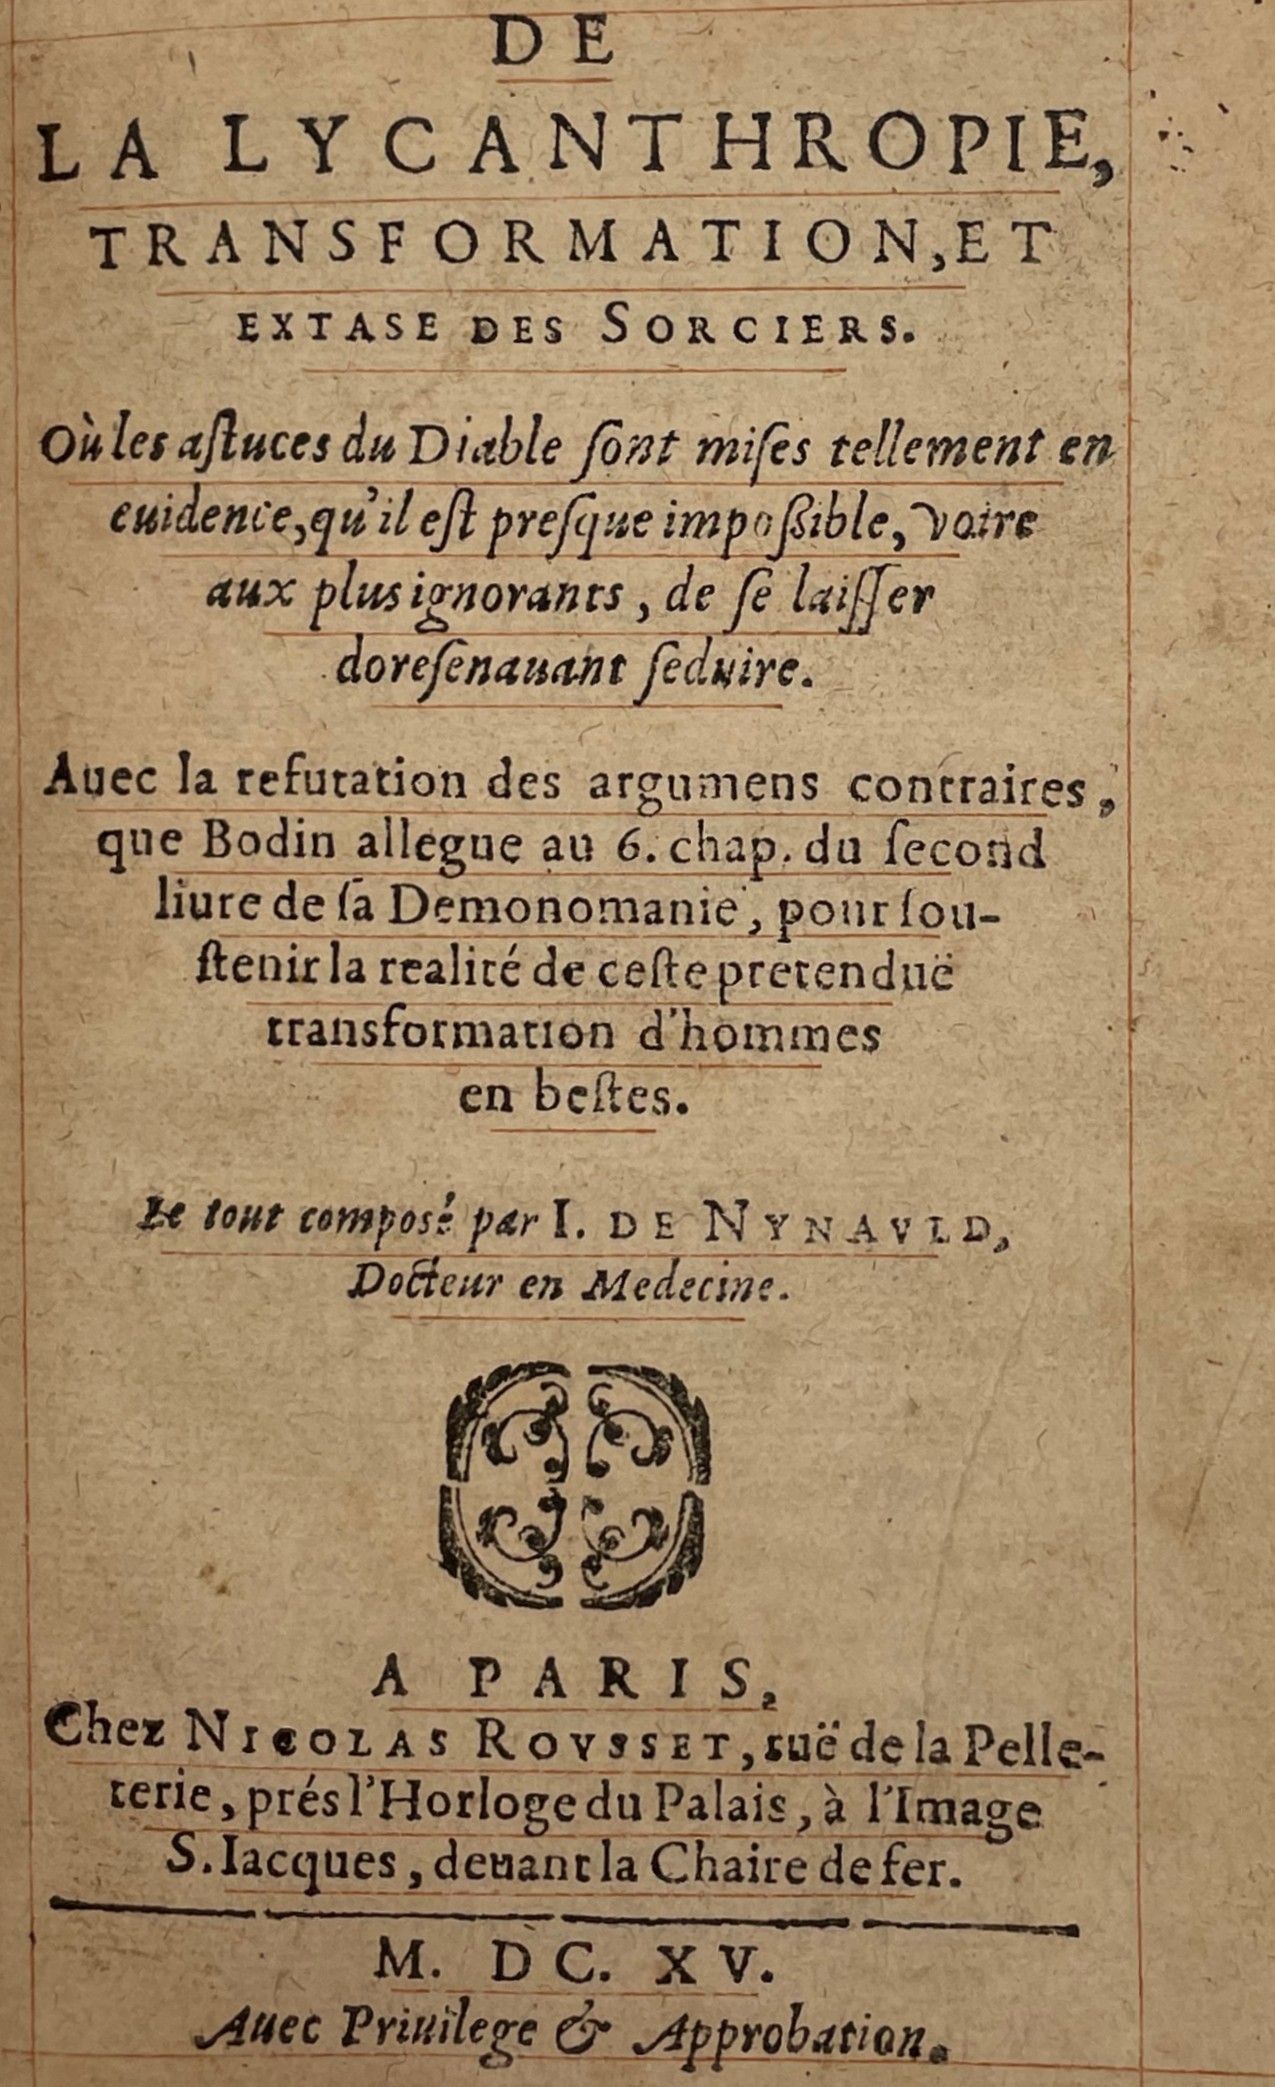 DE
LA LYCANTHROPIE,
TRANSFORMATION, ET
EXTASE DES SORCIERS.
Où les aſtuces du Diable ſont miſes tellement en
euidence, qu'il eſt preſque impoßible, voire
aux plus ignorants, de ſe laiſſer
doreſenauant ſeduire.
Auec la refutation des argumens contraires,
que Bodin allegue au 6. chap. du ſecond
liure de ſa Demonomanie, pour ſou-
ſtenir la realité de ceſte pretenduë
transformation d'hommes
en beſtes.
Le tout composé par I. DE NYNAVLD,
Docteur en Medecine.
A PARIS,
Chez NICOLAS ROVSSET, ruë de la Pelle-
terie, prés l'Horloge du Palais, à l'Image
S. Iacques, deuant la Chaire de fer.
M. DC. XV.
Auec Priuilege & Approbation.